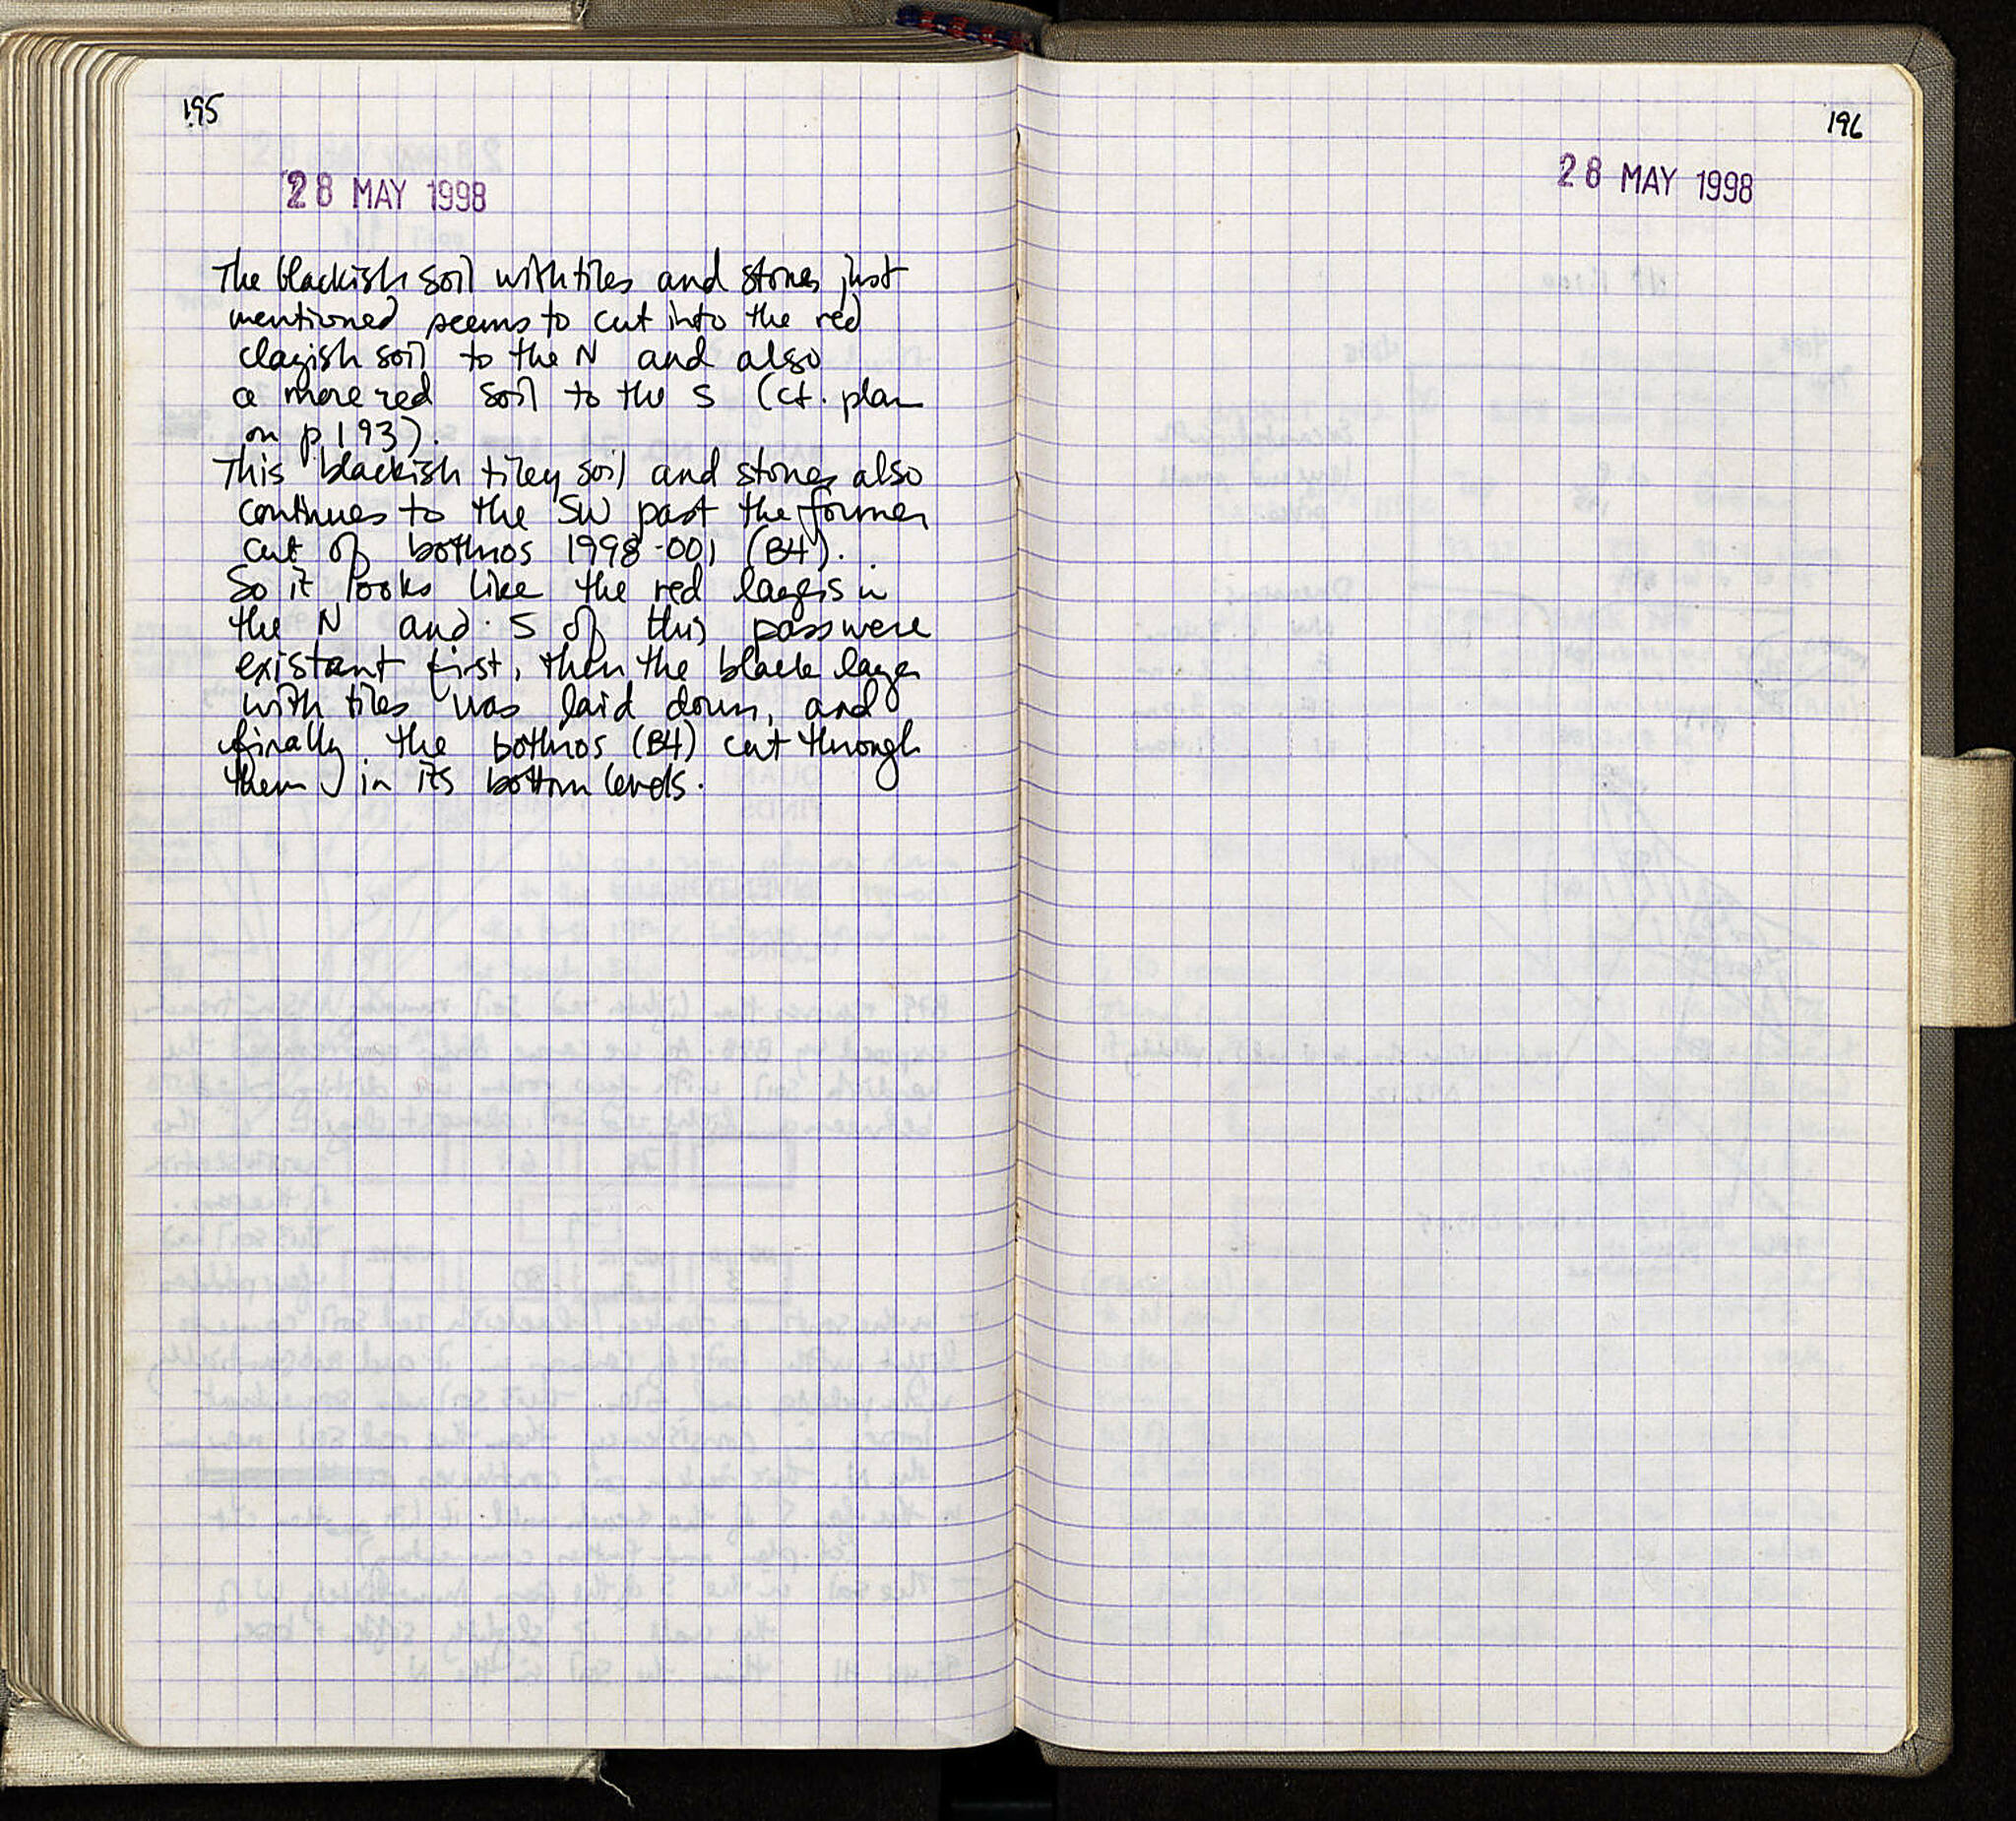 195
28 MAY 1998
The blackish soil with tiles and stones just
mentioned seems to cut into the red
clayish soil to the N and also
a more red soil to the S (cf. plan
on p. 193).
This blackish tiley soil and stones also
continues to the SW past the former
cut of bothros 1998-001 (B4).
So it looks like the red layers in
the N and S of this pass were
existant first, then the black layer
with tiles was laid down, and
finally the bothros (B4) cut through
them in its bottom levels.
196
28 MAY 1998